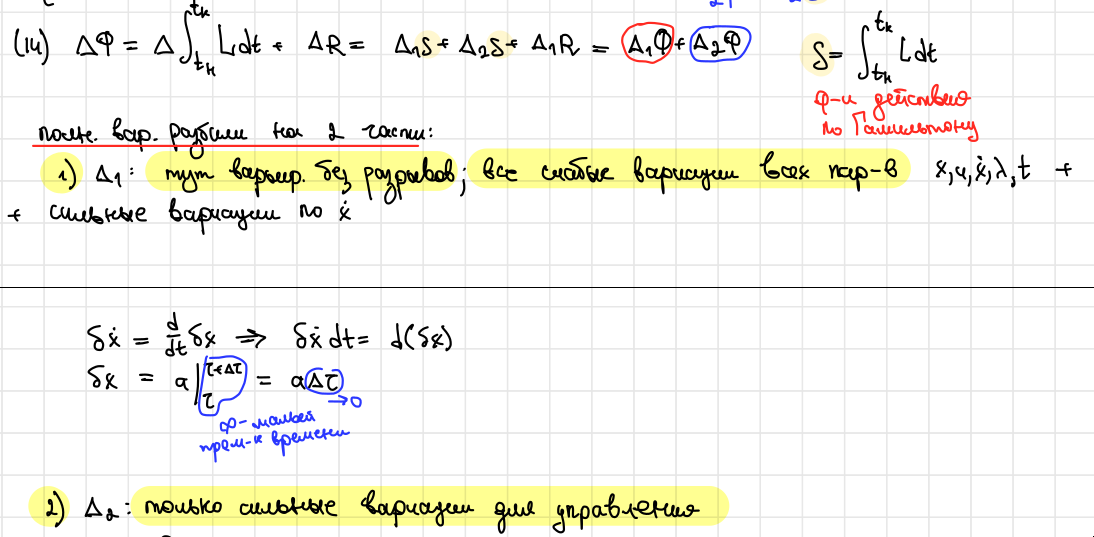 (14) ΔΦ = Δ∫_{tн}^{tк} L dt + ΔR = Δ₁S + Δ₂S + Δ₁R = Δ₁Φ + Δ₂Φ
S = ∫_{tн}^{tк} L dt
ф-и действия
по Гамильтону
полн. вар. разбили на 2 части:
1) Δ₁: тут варьир. без разрывов; все слабые вариации всех пар-в x, u, ẋ, λ, t +
+ сильные вариации по ẋ
δẋ = d/dt δx ⇒ δẋ dt = d(δx)
δx = a|_τ^{τ+Δτ} = aΔτ
→0
∞-малый
пром-к времени
2) Δ₂: только сильные вариации для управления